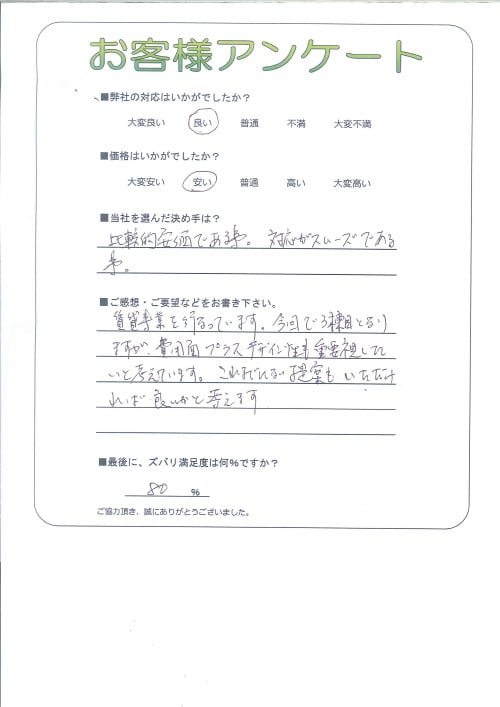 お客様アンケート
■弊社の対応はいかがでしたか？
大変良い 良い 普通 不満 大変不満
■価格はいかがでしたか？
大変安い 安い 普通 高い 大変高い
■当社を選んだ決め手は？
比較的安価である事。 対応がスムーズである
事。
■ご感想・ご要望などをお書き下さい。
賃貸事業を行なっています。今回で3棟目となり
ますが、費用面プラスデザイン性も重要視した
いと考えています。これまでにない提案もいただけ
れば良いかと考えます
■最後に、ズバリ満足度は何％ですか？
80 ％
ご協力頂き、誠にありがとうございました。